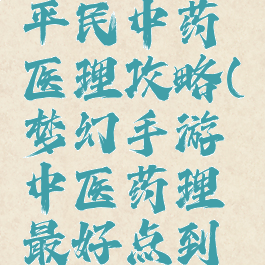 平民中药
医理攻略(
梦幻手游
中医药理
最好点到